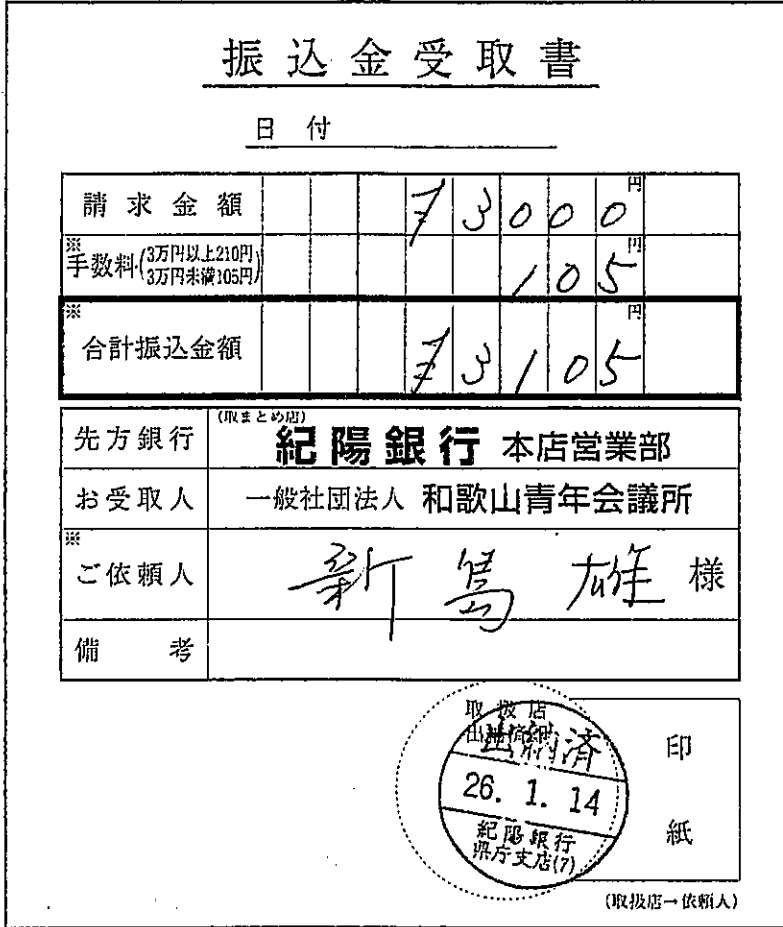 振込金受取書
日 付
請求金額 ¥3000円
※手数料(3万円以上210円 3万円未満105円) 105円
※合計振込金額 ¥3105円
先方銀行 (取まとめ店) 紀陽銀行 本店営業部
お受取人 一般社団法人 和歌山青年会議所
※ご依頼人 新島 雄 様
備 考
取扱店
出納済
26. 1. 14
紀陽銀行
県庁支店(7)
印
紙
(取扱店→依頼人)